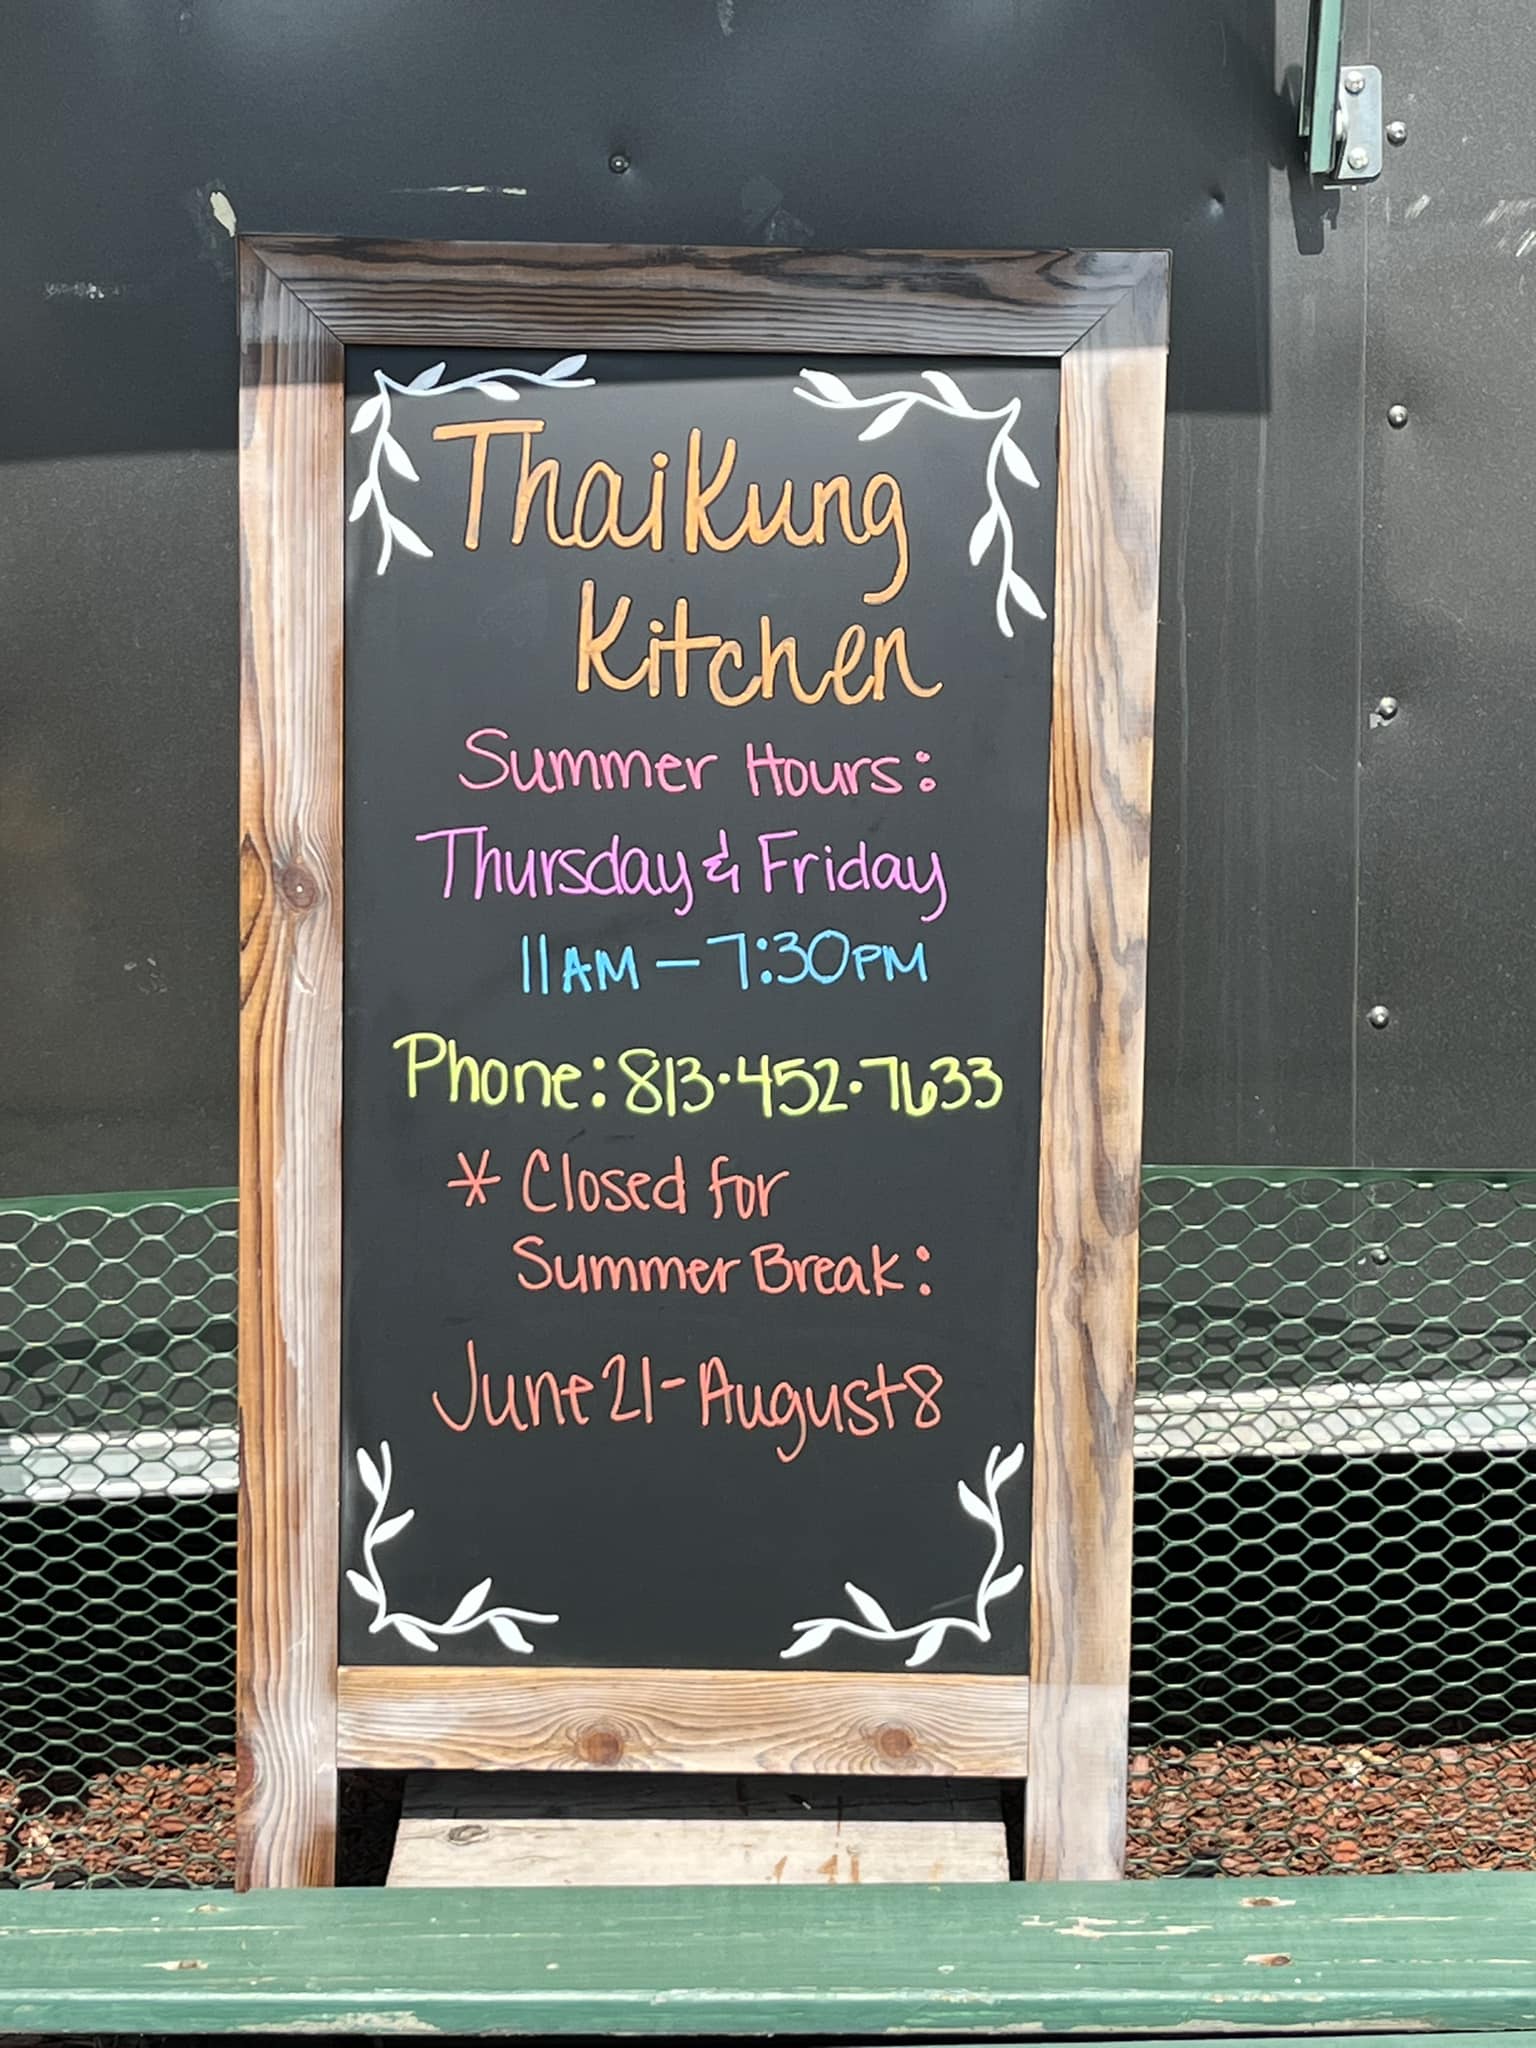 Thai Kung
Kitchen
Summer Hours:
Thursday & Friday
11AM - 7:30PM
Phone: 813.452.7633
* Closed for
Summer Break:
June 21 - August 8